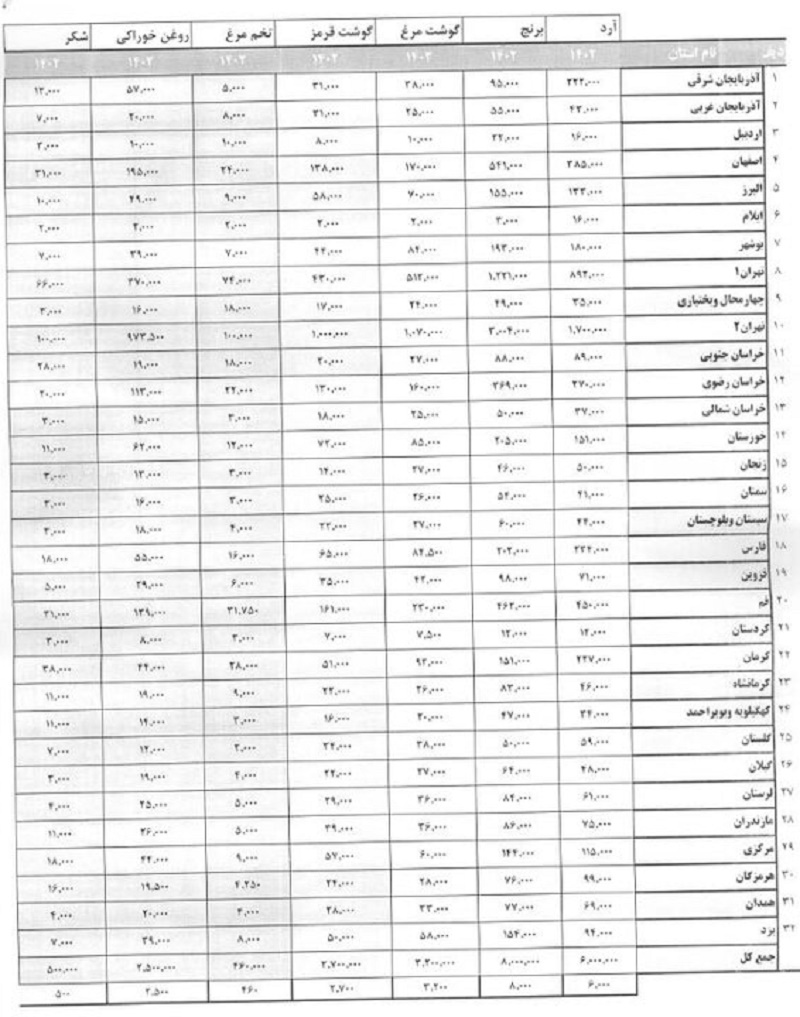 آرد برنج گوشت مرغ گوشت قرمز تخم مرغ روغن خوراکی شکر
ردیف نام استان ۱۴۰۲ ۱۴۰۲ ۱۴۰۲ ۱۴۰۲ ۱۴۰۲ ۱۴۰۲ ۱۴۰۲
۱ آذربایجان شرقی ۲۲۲,۰۰۰ ۹۵,۰۰۰ ۳۸,۰۰۰ ۳۱,۰۰۰ ۵,۰۰۰ ۵۷,۰۰۰
۲ آذربایجان غربی ۵۵,۰۰۰ ۲۵,۰۰۰ ۳۱,۰۰۰ ۸,۰۰۰ ۲۰,۰۰۰ ۷,۰۰۰
۳ اردبیل ۱۶,۰۰۰ ۲۲,۰۰۰ ۱۰,۰۰۰ ۸,۰۰۰ ۱۰,۰۰۰ ۱۰,۰۰۰
۴ اصفهان ۵۴۱,۰۰۰ ۱۷۰,۰۰۰ ۱۳۸,۰۰۰ ۲۴,۰۰۰ ۱۹۵,۰۰۰ ۳۱,۰۰۰
۵ البرز ۱۵۵,۰۰۰ ۷۰,۰۰۰ ۵۸,۰۰۰ ۹,۰۰۰ ۴۹,۰۰۰ ۱۰,۰۰۰
۶ ایلام ۱۶,۰۰۰ ۲,۰۰۰ ۲,۰۰۰ ۲,۰۰۰
۷ بوشهر ۱۸۰,۰۰۰ ۱۹۳,۰۰۰ ۸۴,۰۰۰ ۴۴,۰۰۰ ۷,۰۰۰ ۳۹,۰۰۰ ۷,۰۰۰
۸ تهران۱ ۱,۲۲۱,۰۰۰ ۴۳۰,۰۰۰ ۷۴,۰۰۰ ۳۷۰,۰۰۰ ۶۶,۰۰۰
۹ چهارمحال وبختیاری ۳۵,۰۰۰ ۴۹,۰۰۰ ۲۴,۰۰۰ ۱۷,۰۰۰ ۱۸,۰۰۰ ۱۶,۰۰۰ ۳,۰۰۰
۱۰ تهران۲ ۱,۷۰۰,۰۰۰ ۳,۰۰۴,۰۰۰ ۱,۰۷۰,۰۰۰ ۱,۰۰۰,۰۰۰ ۱۰۰,۰۰۰ ۹۷۳,۵۰۰ ۱۰۰,۰۰۰
۱۱ خراسان جنوبی ۸۹,۰۰۰ ۸۸,۰۰۰ ۲۷,۰۰۰ ۲۰,۰۰۰ ۱۸,۰۰۰ ۱۹,۰۰۰ ۲۸,۰۰۰
۱۲ خراسان رضوی ۳۷۰,۰۰۰ ۳۶۹,۰۰۰ ۱۶۰,۰۰۰ ۱۳۰,۰۰۰ ۲۲,۰۰۰ ۱۱۳,۰۰۰ ۲۰,۰۰۰
۱۳ خراسان شمالی ۳۷,۰۰۰ ۵۰,۰۰۰ ۲۵,۰۰۰ ۱۸,۰۰۰ ۳,۰۰۰ ۱۵,۰۰۰ ۳,۰۰۰
۱۴ خوزستان ۱۵۱,۰۰۰ ۲۰۵,۰۰۰ ۸۵,۰۰۰ ۷۲,۰۰۰ ۱۲,۰۰۰ ۶۲,۰۰۰ ۱۱,۰۰۰
۱۵ زنجان ۵۰,۰۰۰ ۴۶,۰۰۰ ۲۷,۰۰۰ ۱۴,۰۰۰ ۳,۰۰۰ ۱۳,۰۰۰ ۳,۰۰۰
۱۶ سمنان ۴۱,۰۰۰ ۵۴,۰۰۰ ۲۶,۰۰۰ ۲۵,۰۰۰ ۳,۰۰۰ ۱۶,۰۰۰ ۳,۰۰۰
۱۷ سیستان وبلوچستان ۴۴,۰۰۰ ۶۰,۰۰۰ ۲۷,۰۰۰ ۴,۰۰۰ ۱۸,۰۰۰ ۳,۰۰۰
۱۸ فارس ۲۰۲,۰۰۰ ۸۴,۵۰۰ ۶۵,۰۰۰ ۱۶,۰۰۰ ۵۵,۰۰۰ ۱۸,۰۰۰
۱۹ قزوین ۷۱,۰۰۰ ۹۸,۰۰۰ ۴۲,۰۰۰ ۳۵,۰۰۰ ۶,۰۰۰ ۲۹,۰۰۰ ۵,۰۰۰
۲۰ قم ۴۵۰,۰۰۰ ۴۶۲,۰۰۰ ۲۳۰,۰۰۰ ۱۶۱,۰۰۰ ۳۱,۷۵۰ ۱۳۹,۰۰۰ ۲۱,۰۰۰
۲۱ کردستان ۱۲,۰۰۰ ۱۲,۰۰۰ ۷,۵۰۰ ۷,۰۰۰ ۸,۰۰۰ ۳,۰۰۰
۲۲ کرمان ۲۲۷,۰۰۰ ۱۵۱,۰۰۰ ۹۲,۰۰۰ ۵۱,۰۰۰ ۲۸,۰۰۰ ۴۴,۰۰۰ ۳۸,۰۰۰
۲۳ کرمانشاه ۴۶,۰۰۰ ۸۳,۰۰۰ ۲۶,۰۰۰ ۹,۰۰۰ ۱۹,۰۰۰ ۱۱,۰۰۰
۲۴ کهگیلویه وبویراحمد ۳۴,۰۰۰ ۴۷,۰۰۰ ۲۰,۰۰۰ ۱۶,۰۰۰ ۳,۰۰۰ ۱۴,۰۰۰ ۱۱,۰۰۰
۲۵ گلستان ۵۹,۰۰۰ ۵۰,۰۰۰ ۳۸,۰۰۰ ۱۲,۰۰۰ ۷,۰۰۰
۲۶ گیلان ۴۸,۰۰۰ ۶۴,۰۰۰ ۲۷,۰۰۰ ۴,۰۰۰ ۱۹,۰۰۰ ۳,۰۰۰
۲۷ لرستان ۶۱,۰۰۰ ۸۴,۰۰۰ ۳۶,۰۰۰ ۲۹,۰۰۰ ۵,۰۰۰ ۲۵,۰۰۰ ۴,۰۰۰
۲۸ مازندران ۷۵,۰۰۰ ۸۶,۰۰۰ ۳۶,۰۰۰ ۳۹,۰۰۰ ۵,۰۰۰ ۲۶,۰۰۰ ۱۱,۰۰۰
۲۹ مرکزی ۱۱۵,۰۰۰ ۱۴۴,۰۰۰ ۶۰,۰۰۰ ۵۷,۰۰۰ ۹,۰۰۰ ۴۴,۰۰۰ ۱۸,۰۰۰
۳۰ هرمزگان ۹۹,۰۰۰ ۷۶,۰۰۰ ۲۸,۰۰۰ ۲۴,۰۰۰ ۴,۲۵۰ ۱۹,۵۰۰ ۱۶,۰۰۰
۳۱ همدان ۶۹,۰۰۰ ۷۷,۰۰۰ ۲۸,۰۰۰ ۴,۰۰۰ ۲۰,۰۰۰ ۴,۰۰۰
۳۲ یزد ۹۴,۰۰۰ ۱۵۴,۰۰۰ ۵۸,۰۰۰ ۵۰,۰۰۰ ۸,۰۰۰ ۳۹,۰۰۰ ۷,۰۰۰
جمع کل ۶,۰۰۰,۰۰۰ ۸,۰۰۰,۰۰۰ ۳,۲۰۰,۰۰۰ ۲,۷۰۰,۰۰۰ ۴۶۰,۰۰۰ ۲,۵۰۰,۰۰۰ ۵۰۰,۰۰۰
۶,۰۰۰ ۸,۰۰۰ ۳,۲۰۰ ۲,۷۰۰ ۴۶۰ ۲,۵۰۰ ۵۰۰